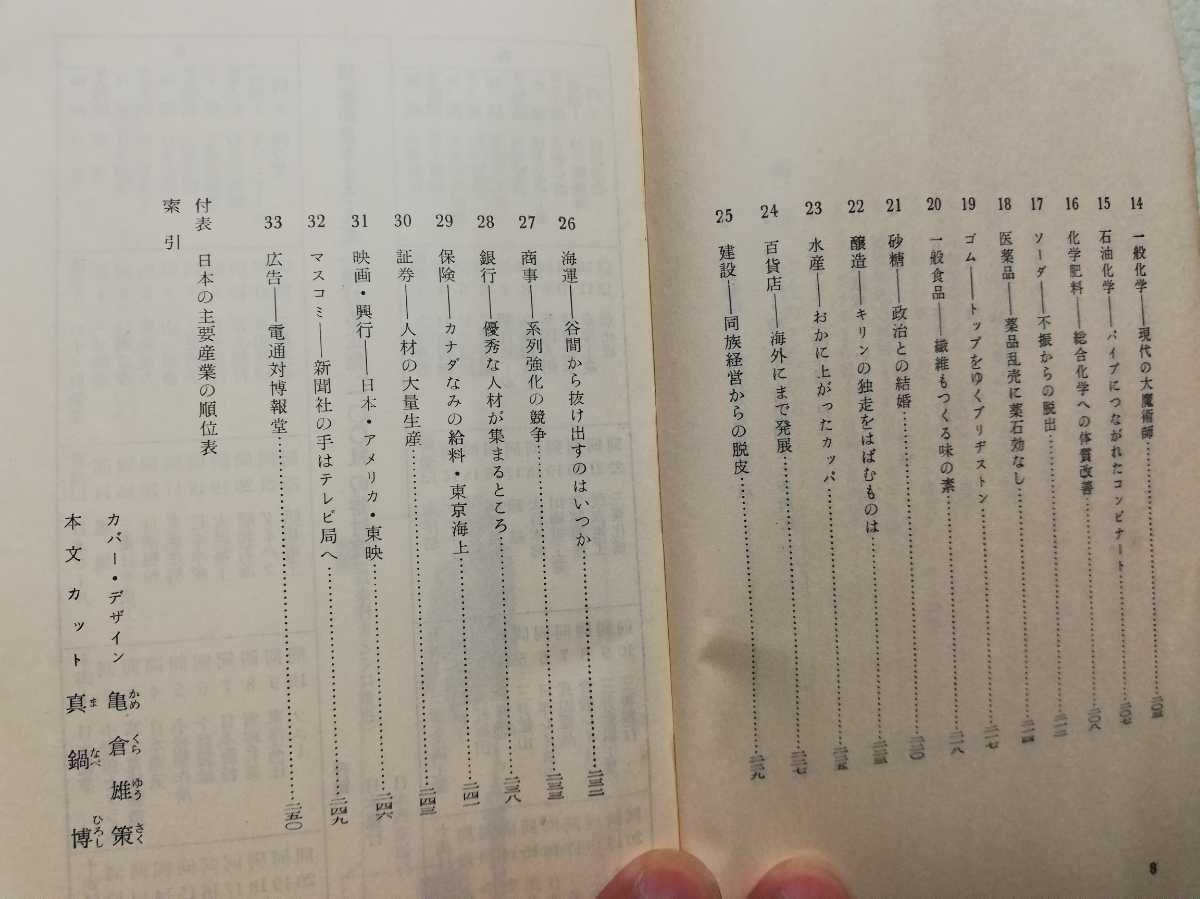 14 一般化学——現代の大魔術師…………二〇三
15 石油化学——パイプにつながれたコンビナート…………二〇七
16 化学肥料——総合化学への体質改善…………二〇八
17 ソーダ——不振からの脱出…………二一二
18 医薬品——薬品乱売に薬石効なし…………二一四
19 ゴム——トップをゆくブリヂストン…………二一七
20 一般食品——繊維もつくる味の素…………二一八
21 砂糖——政治との結婚…………二二〇
22 醸造——キリンの独走をはばむものは…………二二三
23 水産——おかに上がったカッパ…………二二五
24 百貨店——海外にまで発展…………二二七
25 建設——同族経営からの脱皮…………二二九
8
26 海運——谷間から抜け出すのはいつか…………二三二
27 商事——系列強化の競争…………二三三
28 銀行——優秀な人材が集まるところ…………二三八
29 保険——カナダなみの給料・東京海上…………二四一
30 証券——人材の大量生産…………二四三
31 映画・興行——日本・アメリカ・東映…………二四六
32 マスコミ——新聞社の手はテレビ局へ…………二四九
33 広告——電通対博報堂…………二五〇
付表 日本の主要産業の順位表
索引
カバー・デザイン 亀倉雄策
かめくらゆうさく
本文カット 真鍋博
まなべひろし